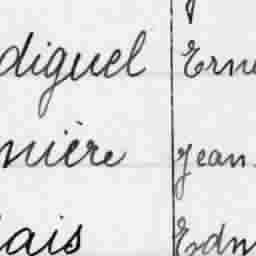 diguel Erne
nière Jean
lais Edm